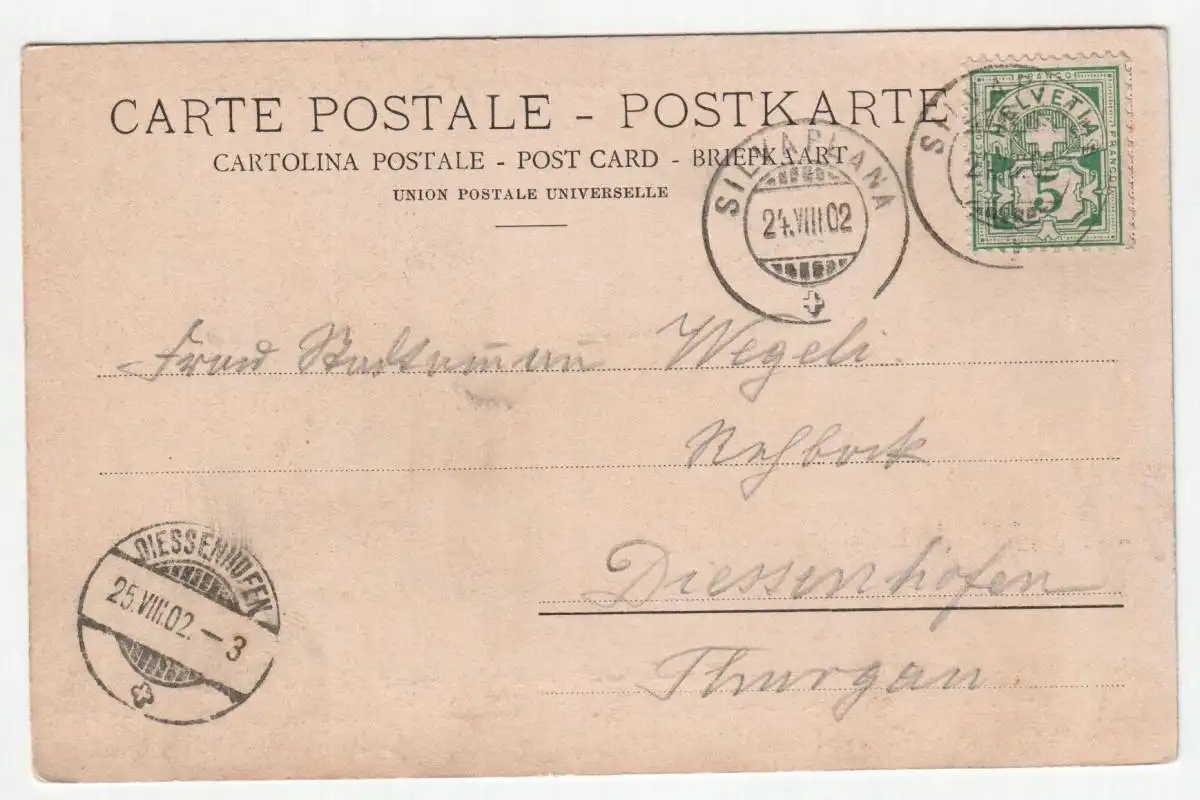 CARTE POSTALE - POSTKARTE
CARTOLINA POSTALE - POST CARD - BRIEFKAART
UNION POSTALE UNIVERSELLE
FRANCO
HELVETIA
FRANCO
5
SILVAPLANA
24.VIII.02
Frau Wegeli.
Rehbock
Diessenhofen
Thurgau
DIESSENHOFEN
25.VIII.02. - 3